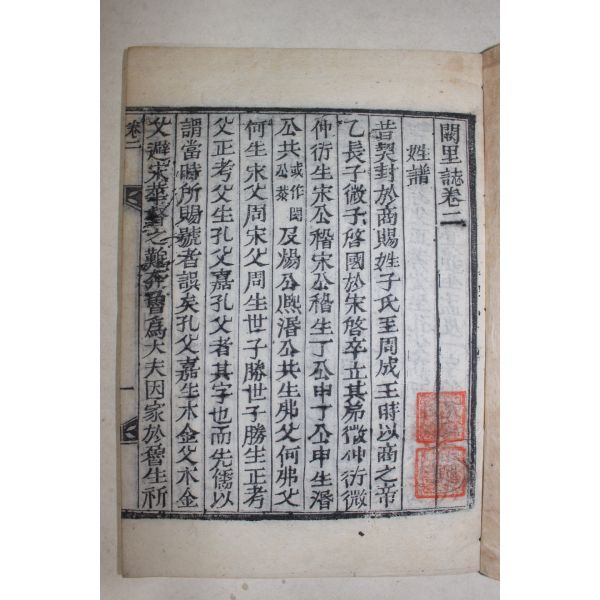 闕里誌卷二
姓譜
昔契封於商賜姓子氏至周成王時以商之帝
乙長子微子啓國於宋啓卒立其弟微仲衍微
仲衍生宋公稽宋公稽生丁公申丁公申生湣
公共或作閔公泰及煬公熙湣公共生弗父何弗父
何生宋父周宋父周生世子勝世子勝生正考
父正考父生孔父嘉孔父者其字也而先儒以
謂當時所賜號者誤矣孔父嘉生木金父木金
父避宋華督之難奔魯爲大夫因家於魯生祈
卷二
一